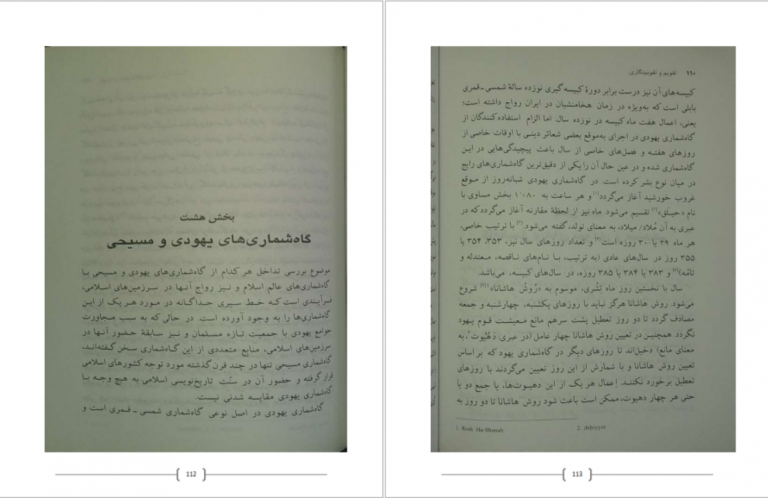 بخش هشت
گاه‌شماری‌های یهودی و مسیحی
موضوع بررسی تداخل هر کدام از گاه‌شماری‌های یهودی و مسیحی با
گاه‌شماری‌های عالم اسلام و نیز رواج آنها در سرزمین‌های اسلامی،
فرآیندی است که خط سیری جداگانه در مورد هر یک از این
گاه‌شماری‌ها را به وجود آورده است. در حالی که به سبب مجاورت
جوامع یهودی با جمعیت تازه مسلمان و نیز سابقهٔ حضور آنها در
سرزمین‌های اسلامی، منابع متعددی از این گاه‌شماری سخن گفته‌اند،
گاه‌شماری مسیحی تنها در چند قرن گذشته مورد توجه کشورهای اسلامی
قرار گرفته و حضور آن در سنّت تاریخ‌نویسی اسلامی به هیچ وجه با
گاه‌شماری یهودی مقایسه شدنی نیست.
گاه‌شماری یهودی در اصل نوعی گاه‌شماری شمسی ـ قمری است و
112
۱۱۰ تقویم و تقویم‌نگاری
کبیسه‌های آن نیز درست برابر دورهٔ کبیسه گیری نوزده سالهٔ شمسی-قمری
بابلی است که به‌ویژه در زمان هخامنشیان در ایران رواج داشته است؛
یعنی، اعمال هفت ماه کبیسه در نوزده سال. اما الزام استفاده‌کنندگان از
گاه‌شماری یهودی در اجرای به‌موقع بعضی شعائر دینی با اوقات خاصی از
روزهای هفته و فصل‌های خاصی از سال باعث پیچیدگی‌هایی در این
گاه‌شماری شده و در عین حال آن را یکی از دقیق‌ترین گاه‌شماری‌های رایج
در میان نوع بشر کرده است. در گاه‌شماری یهودی شبانه‌روز از موقع
غروب خورشید آغاز می‌گردد و هر ساعت به ۱۰۸۰ بخش مساوی با
نام «حیلق» تقسیم می‌شود. ماه نیز از لحظهٔ مقارنه آغاز می‌گردد که در
عبری به آن مُلاد/ میلاد، به معنای تولد، گفته می‌شود. با ترتیب خاصی،
هر ماه ۲۹ یا ۳۰ روزه است و تعداد روزهای سال نیز، ۳۵۳، ۳۵۴ یا
۳۵۵ روز در سال‌های عادی (به ترتیب، با نام‌های ناقصه، معتدله و
تامّه) و ۳۸۳ یا ۳۸۴ یا ۳۸۵ روزه، در سال‌های کبیسه، می‌باشد.
سال با نخستین روز ماه تِشری، موسوم به «رُوش هاشانا» شروع
می‌شود. روش هاشانا هرگز نباید با روزهای یکشنبه، چهارشنبه و جمعه
مصادف گردد تا دو روز تعطیل پشت سرهم مانع معیشت قوم یهود
نگردد. همچنین در تعیین روش هاشانا چهار عامل (در عبری: دَهیُوت، به
معنای مانع) دخیل‌اند تا روزهای دیگر در گاه‌شماری یهود که بر اساس
تعیین روش هاشانا و با شمارش از این روز تعیین می‌گردند با روزهای
تعطیل برخورد نکنند. اِعمال هر یک از این دهیوت‌ها، یا جمع دو یا
حتی هر چهار دهیوت، ممکن است باعث شود روش هاشانا تا دو روز به
1. Rosh Ha-Shanah 2. dehiyyot
113